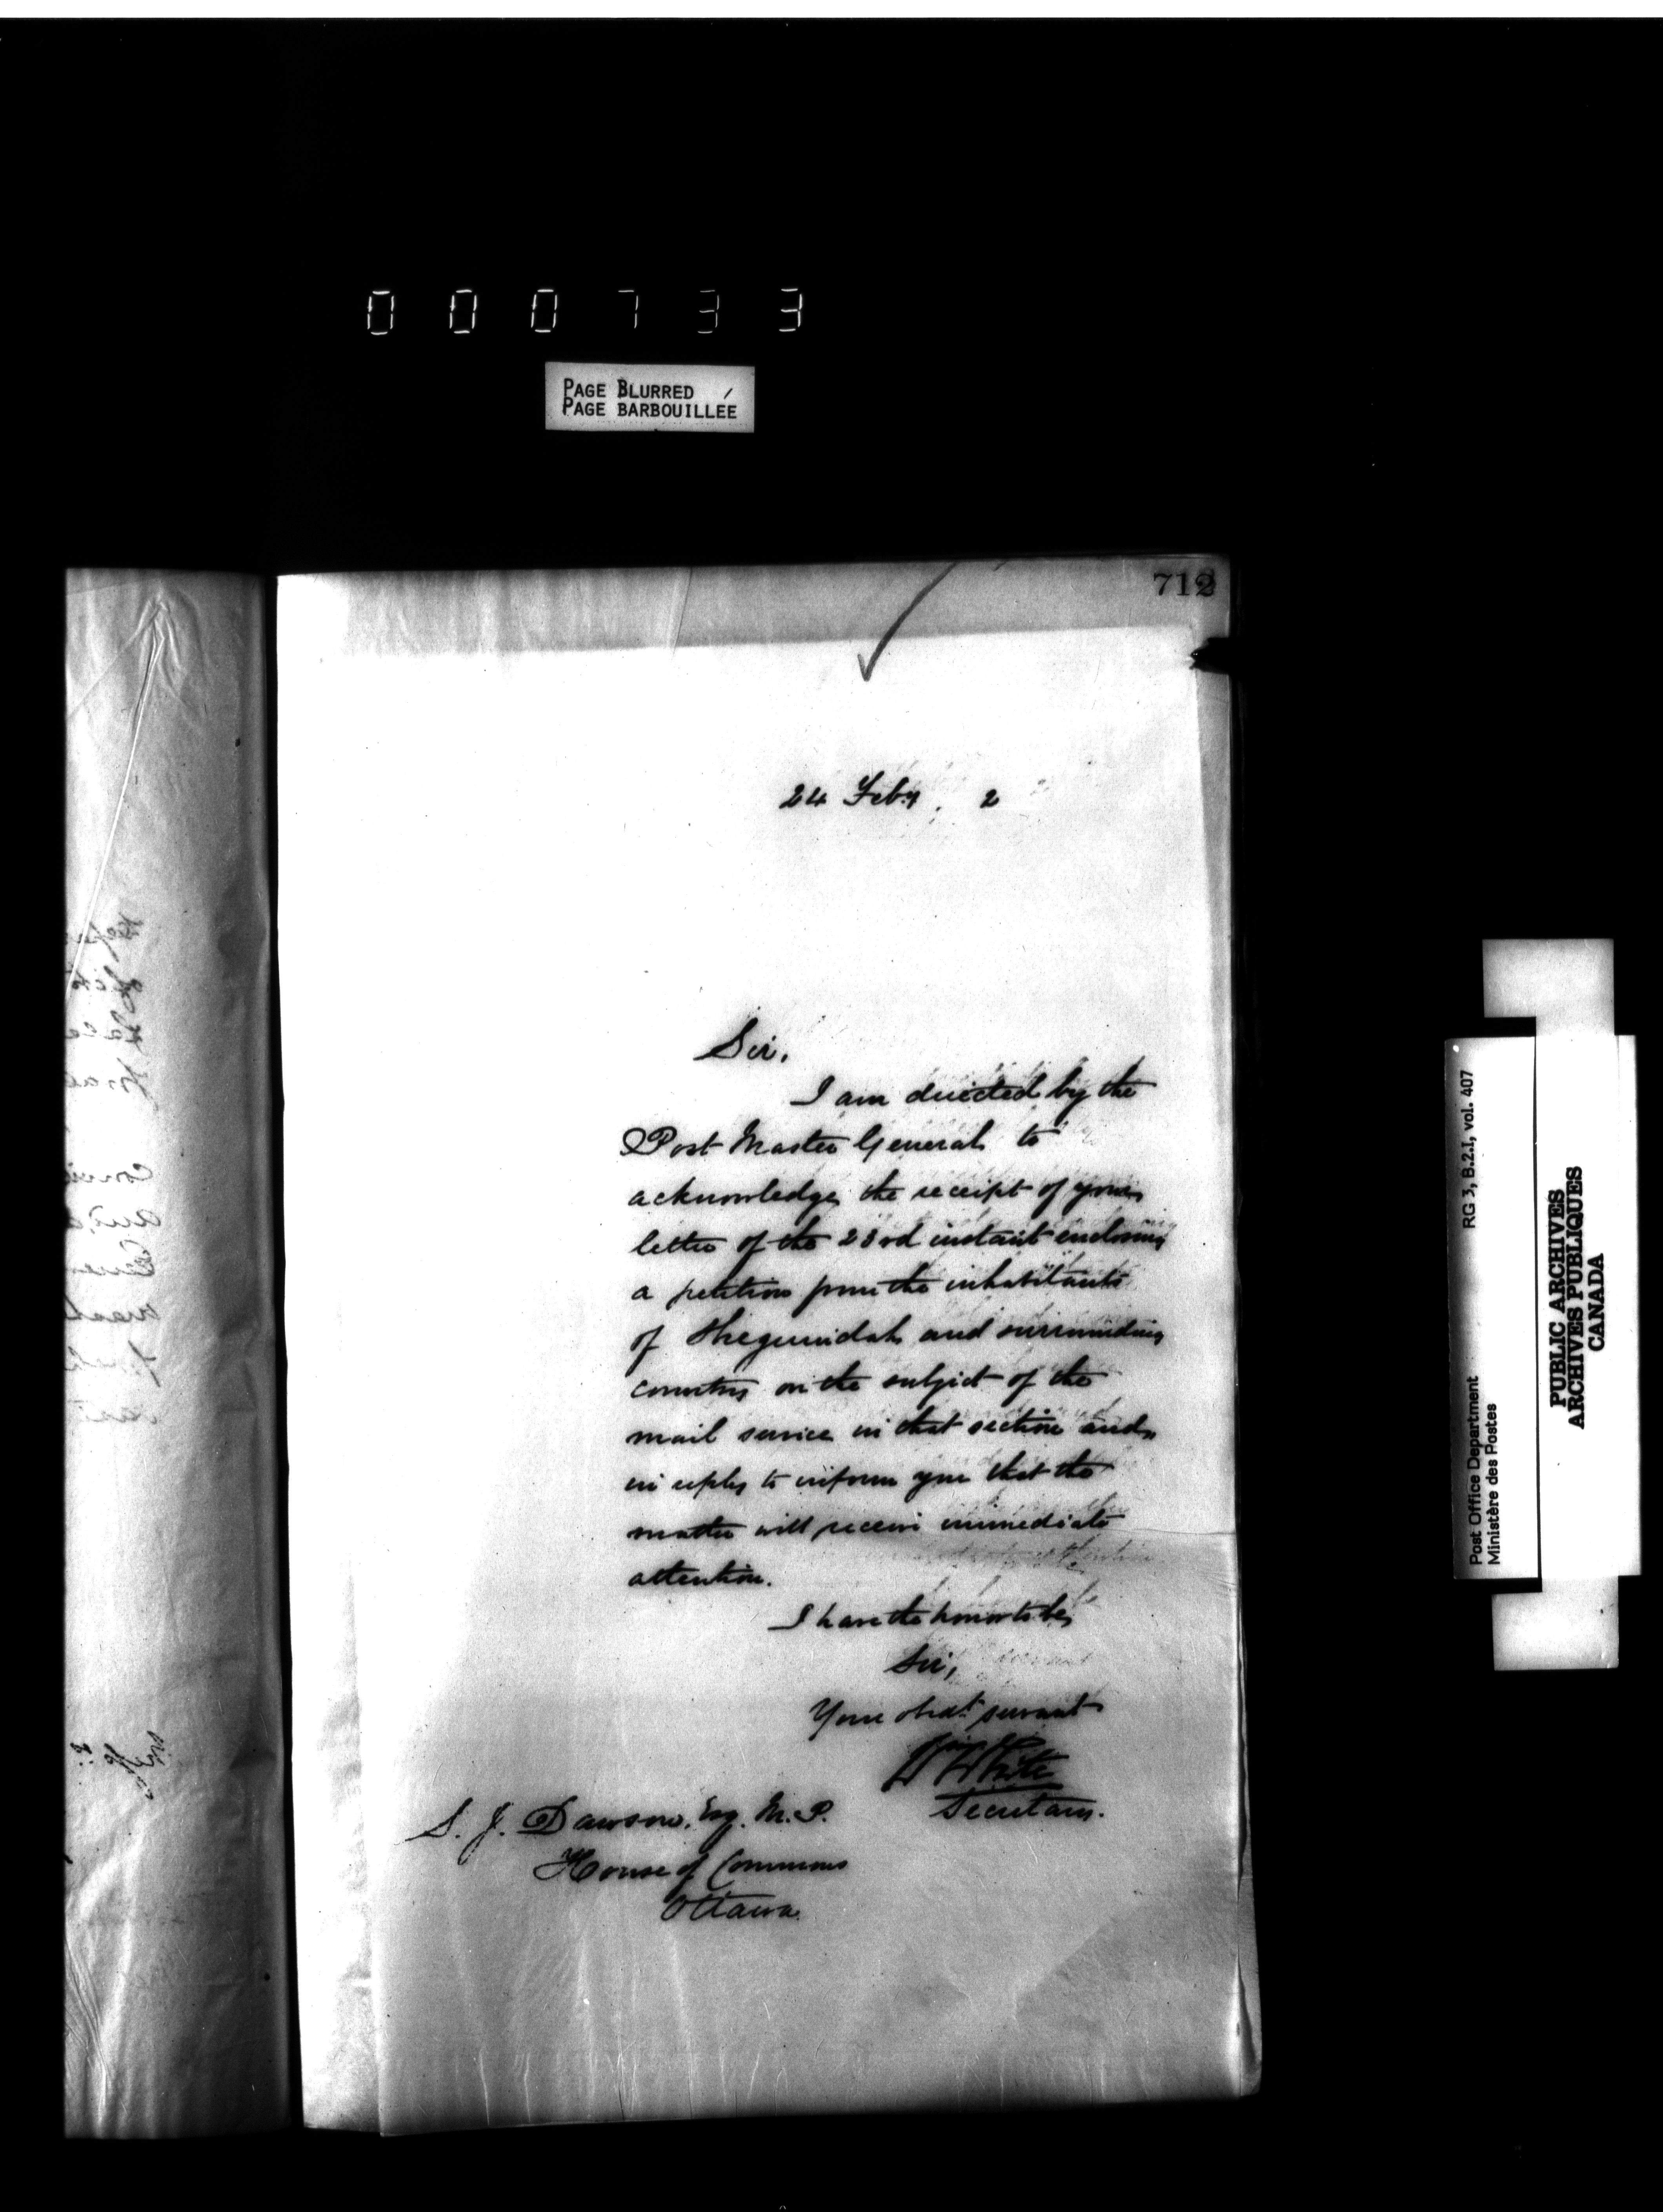 000733
PAGE BLURRED
PAGE BARBOUILLÉE
712
24 Feby. 2
Sir,
I am directed by the
Post Master General to
acknowledge the receipt of your
letter of the 23rd instant enclosing
a petition from the inhabitants
of Sheguindah and surrounding
country on the subject of the
mail service in that section and
in reply to inform you that the
matter will receive immediate
attention.
I have the honor to be,
Sir,
Your obedt servant
White
Secretary.
S. J. Dawson, Esq. M.P.
House of Commons
Ottawa
Post Office Department RG 3, B.2.1, vol. 407
Ministère des Postes
PUBLIC ARCHIVES
ARCHIVES PUBLIQUES
CANADA